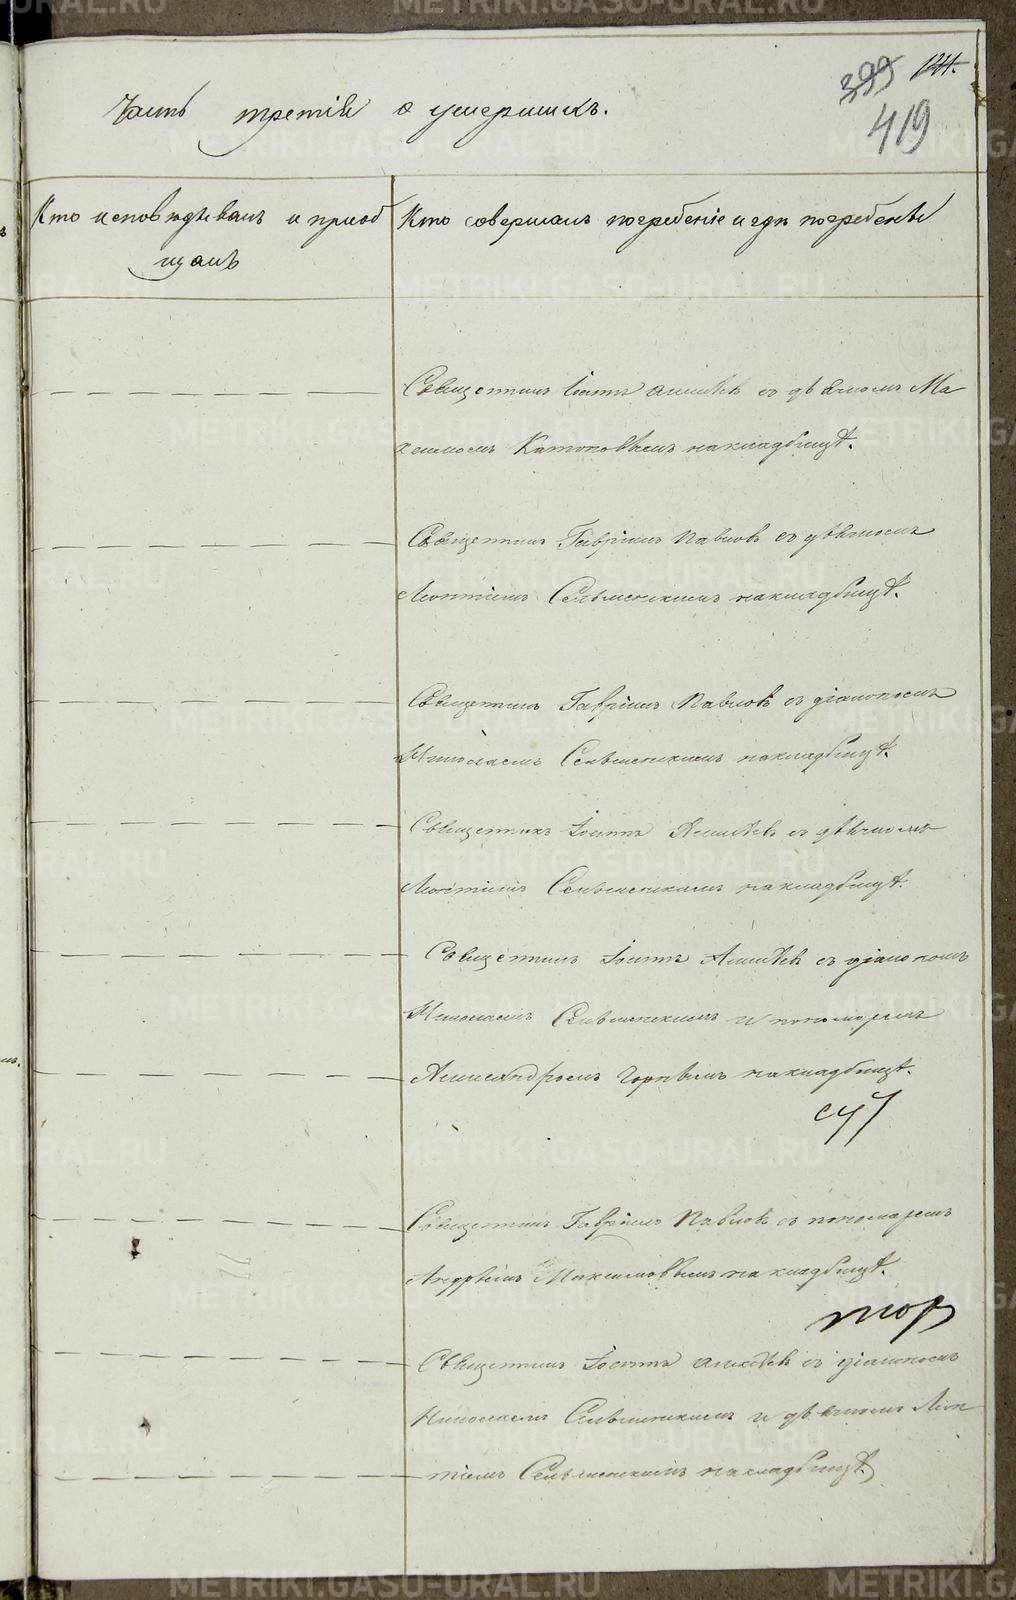 399 124.
419
Часть третія о умершихъ.
Кто исповѣдывалъ и приоб
щалъ
Кто совершалъ погребеніе и гдѣ погребены
Священникъ Іоаннъ Алексѣев съ дьячкомъ Ма
Катоновымъ на кладбищѣ.
Священникъ Гавріилъ Павловъ съ дьячкомъ
Леонтіемъ Сельменскимъ на кладбищѣ.
Священникъ Гавріилъ Павловъ съ діакономъ
Николаемъ Сельменскимъ на кладбищѣ.
Священникъ Іоаннъ Алексѣевъ съ дьячкомъ
Леонтіемъ Сельменскимъ на кладбищѣ.
Священникъ Іоаннъ Алексѣев съ діакономъ
Николаемъ Сельменскимъ и пономаремъ
Александромъ Горнымъ на кладбищѣ.
Священникъ Гавріилъ Павловъ съ пономаремъ
Андреемъ Максимовымъ на кладбищѣ.
Священникъ Іоаннъ Алексѣев съ діакономъ
Николаемъ Сельменскимъ и дьячкомъ Леон
тіемъ Сельменскимъ на кладбищѣ.
METRIKI.GASO-URAL.RU